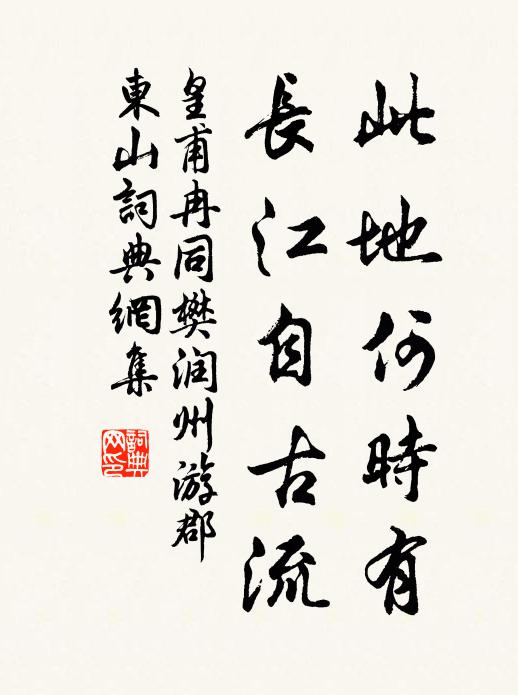 此地何時有
長江自古流
皇甫冉同樊润州游郡
東山詞典網集
詞典网印